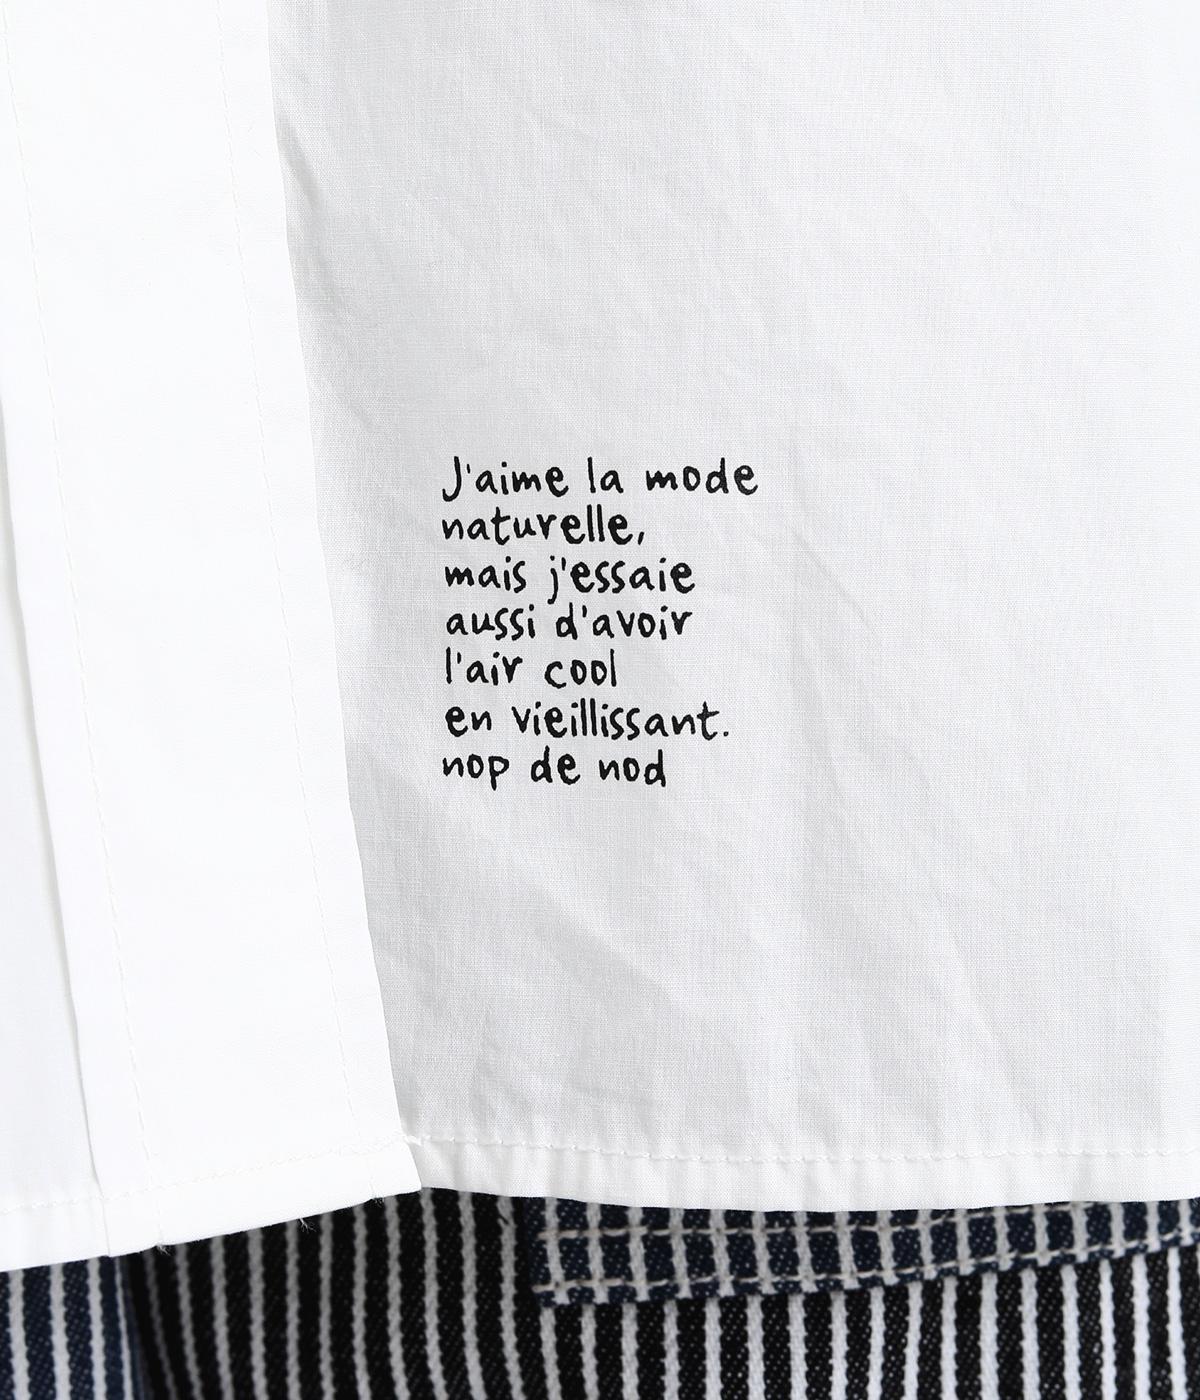 J'aime la mode
naturelle,
mais j'essaie
aussi d'avoir
l'air cool
en vieillissant.
nop de nod